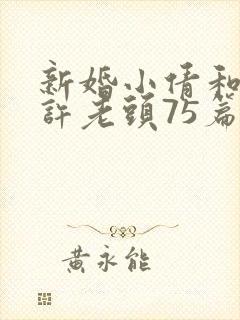 新婚小倩和
許老頭75篇
黃永能